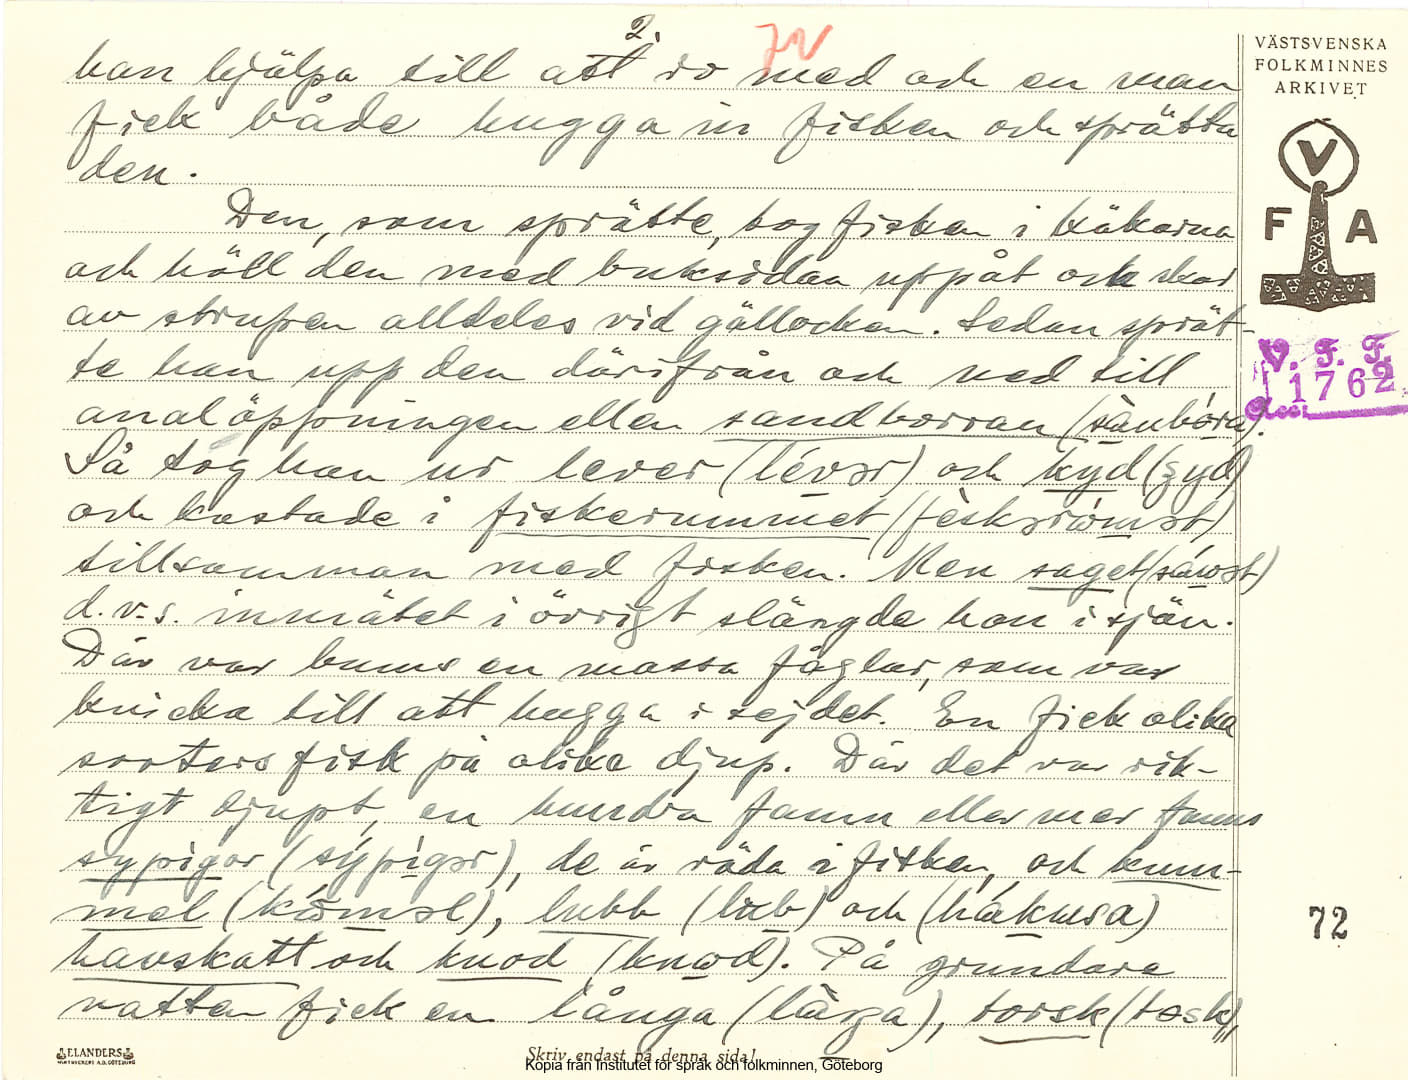 2.
72
VÄSTSVENSKA
FOLKMINNES
ARKIVET
han hjälpa till att ro med och en man
fick både hugga in fisken och sprätta
den.
Den, som sprätte, tog fisken i käkarna
och höll den med buksidan uppåt och skar
av strupen alldeles vid gällocken. Sedan sprät-
te han upp den därifrån och ned till
analöppningen eller sandborran (sànbóra).
Så tog han ur lever (lévər) och kyd (ʒyd)
och kastade i fiskerummet (fèskərómət)
tillsamman med fisken. Men saget (sáwət)
d.v.s. inmätet i övrigt slängde han i sjön.
Där var bums en massa fåglar, som var
knicka till att hugga i sejdet. En fick olika
sorters fisk på olika djup. Där det var rik-
tigt djupt, en hundra famn eller mer fanns
sypigor (sýpìgər), de är röda i fisken, och kum-
mel (kóməl), lubb (lub) och (håkusa)
havskatt och knod (knod). På grundare
vatten fick en långa (låŋa), torsk (tosk),
V
F A
V. F. F.
1762
Acc.
72
ELANDERS
Skriv endast på denna sida!
Kopia från Institutet för språk och folkminnen, Göteborg